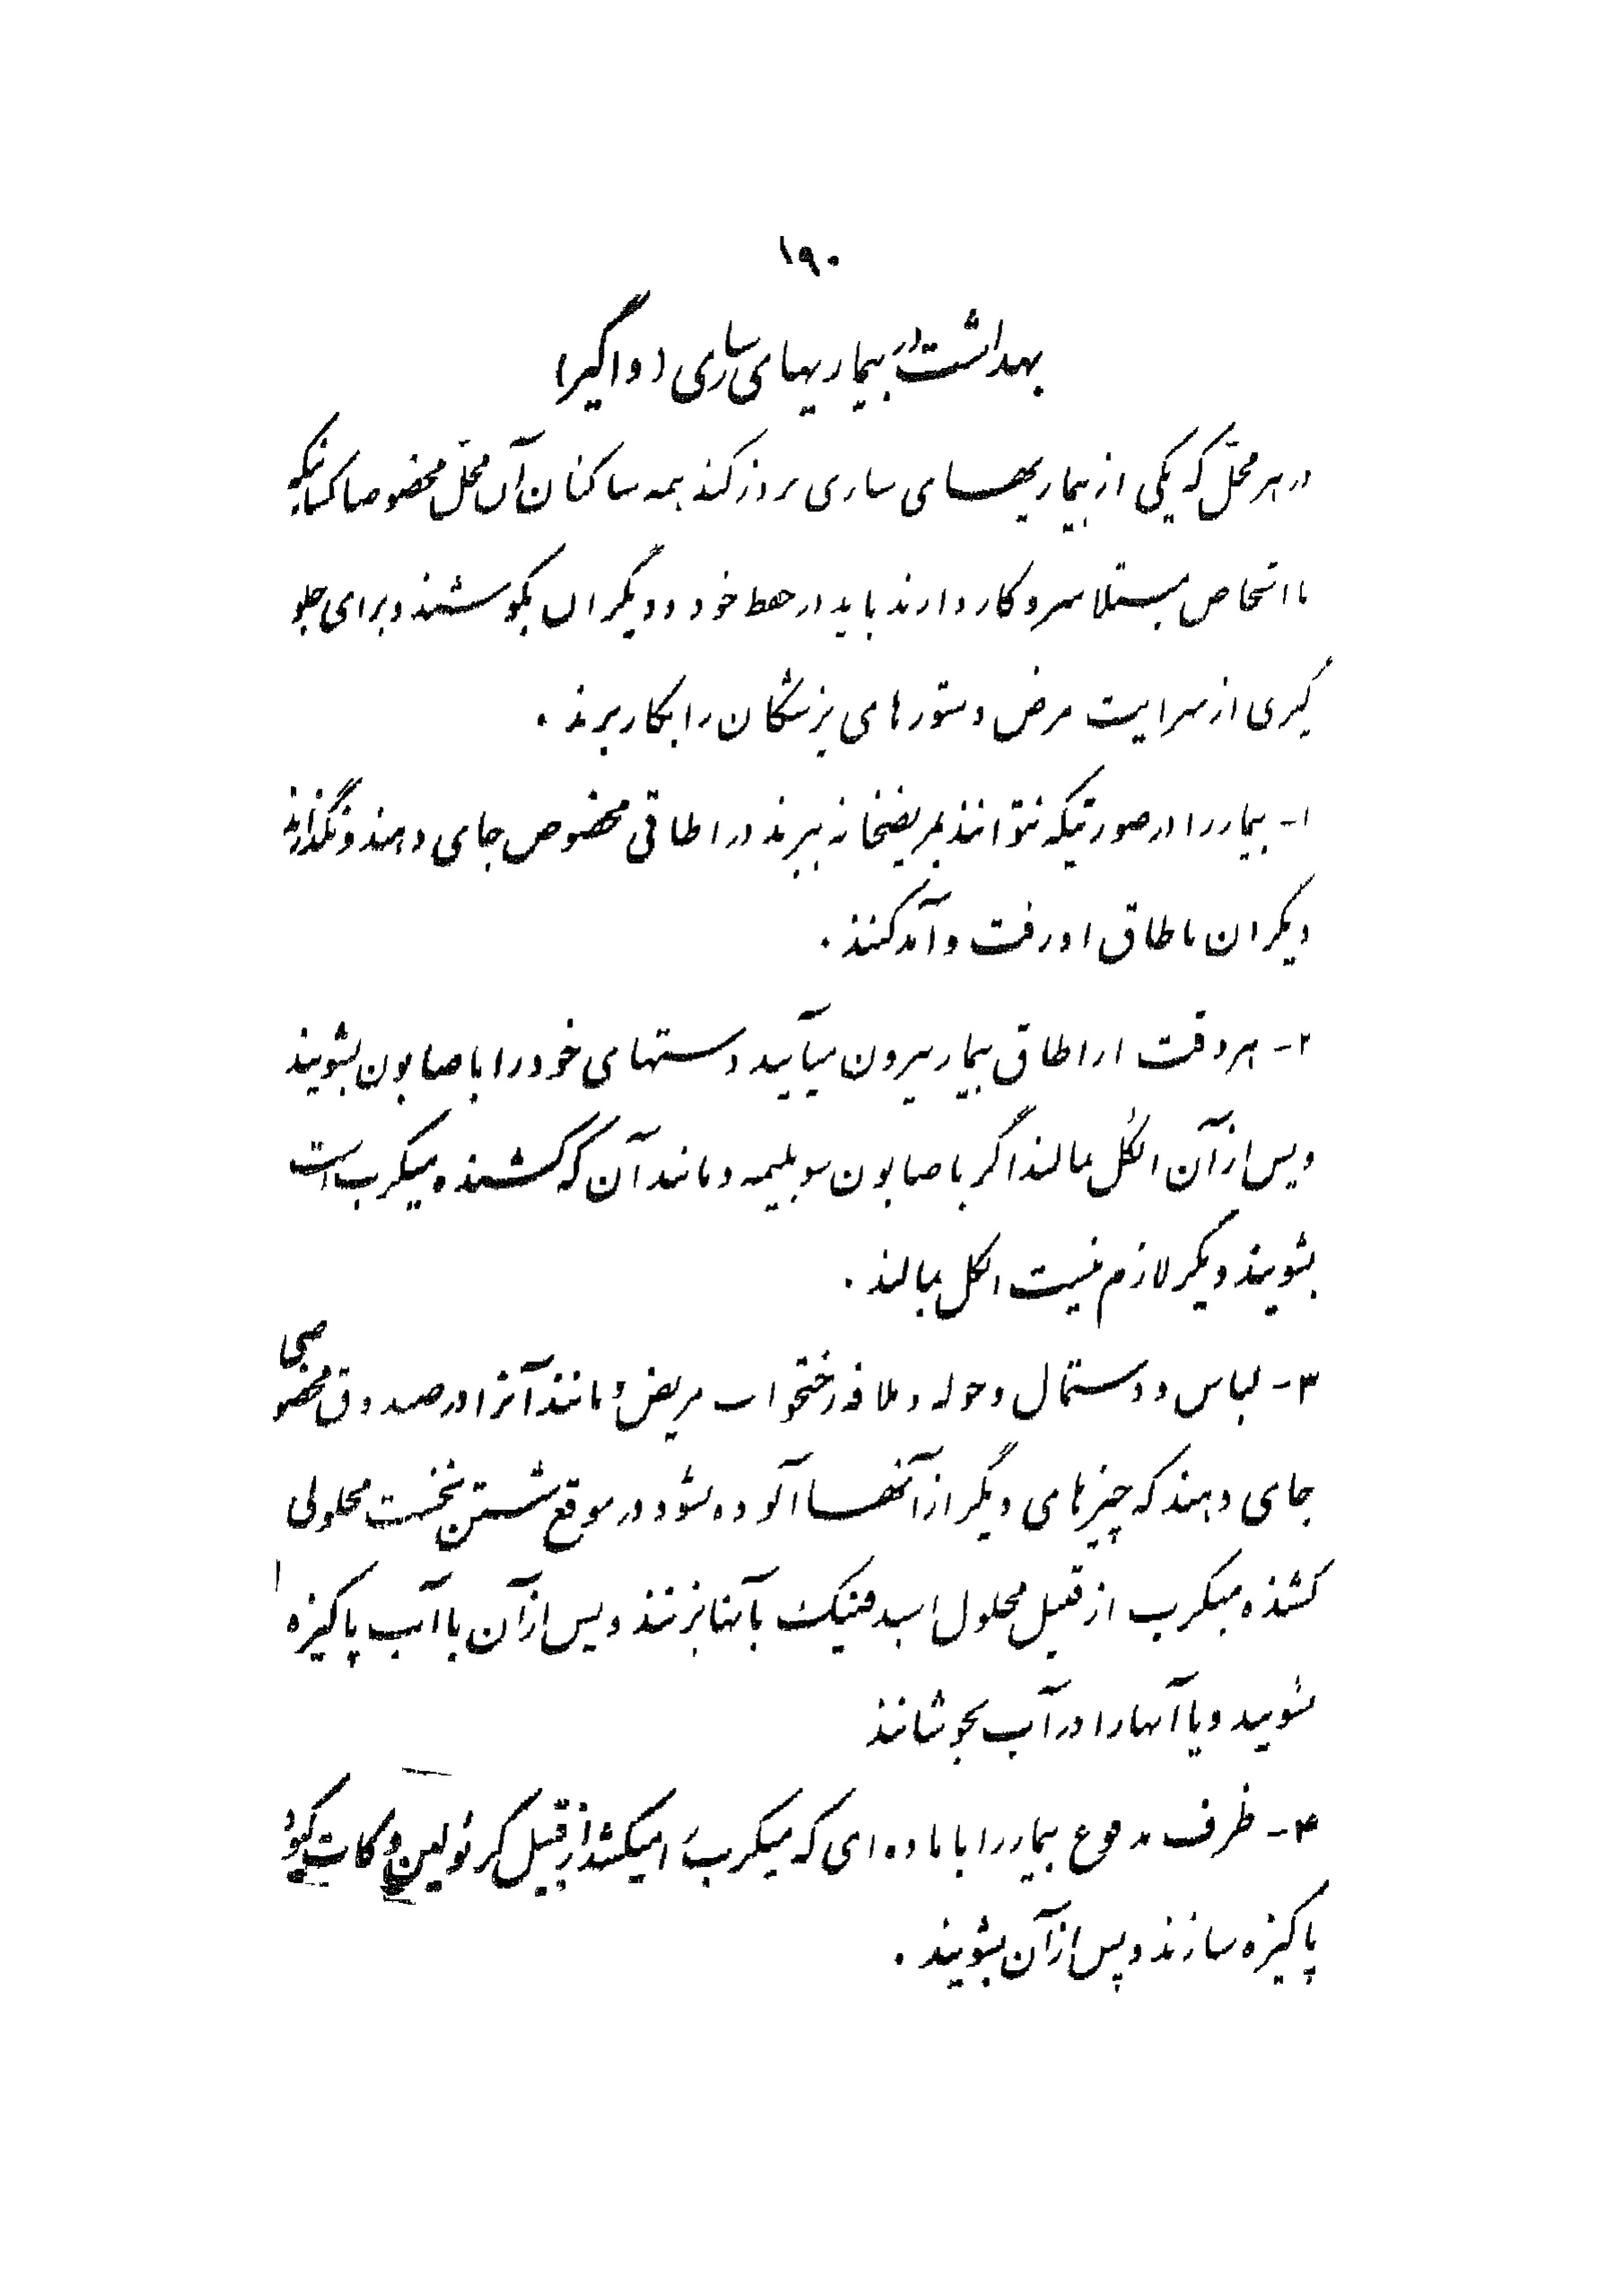 ۱۹۰
بهداشت در بیماریهای ساری (واگیر)
در هر محلّ که یکی از بیماریهای ساری بروز کند همه ساکنان آن محلّ مخصوصا کسانیکه
با اشخاص مبتلا سروکار دارند باید در حفظ خود و دیگران بکوشند و برای جلو
گیری از سرایت مرض دستورهای پزشکان را بکار برند .
۱- بیمار را در صورتیکه نتوانند بمریضخانه ببرند در اطاقی مخصوص جای دهند و نگذارند
دیگران باطاق او رفت و آمد کنند .
۲- هر وقت از اطاق بیمار بیرون میآیند دستهای خود را با صابون بشویند
و پس از آن الکل بمالند اگر با صابون سوبلیمه و مانند آن که کشنده میکرب است
بشویند دیگر لازم نیست الکل بمالند .
۳- لباس و دستمال و حوله و ملافه رختخواب مریض و مانند آنرا در صندوق مخصوصی
جای دهند که چیزهای دیگر از آنها آلوده نشود و در موقع شستن نخست محلولی
کشنده میکرب از قبیل محلول اسید فنیک بآنها بزنند و پس از آن با آب پاکیزه
بشویند و یا آنها را در آب بجوشانند
۴- ظرف مدفوع بیمار را با ماده‌ای که میکرب را میکشد از قبیل کرئولین و کات کبود
پاکیزه سازند و پس از آن بشویند .